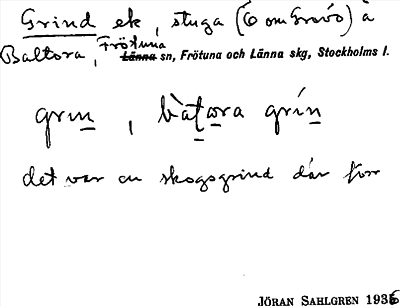 Grind ek, stuga (Ö om Gravö) å
Baltora, Frötuna
Länna sn, Frötuna och Länna skg, Stockholms l.
grın, bàtora grín
det var en skogsgrind där förr
JÖRAN SAHLGREN 1935